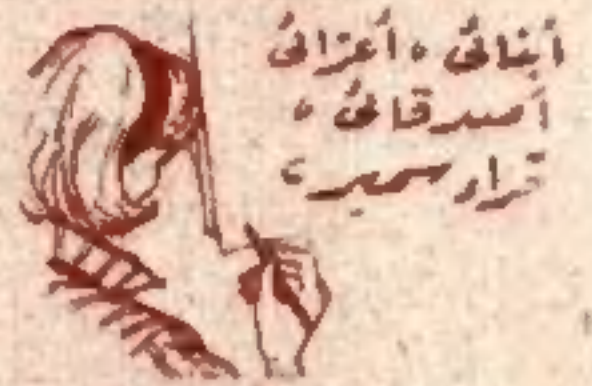 أبنائى ، أعزائى
أصدقائى ،
قراء سمير ،